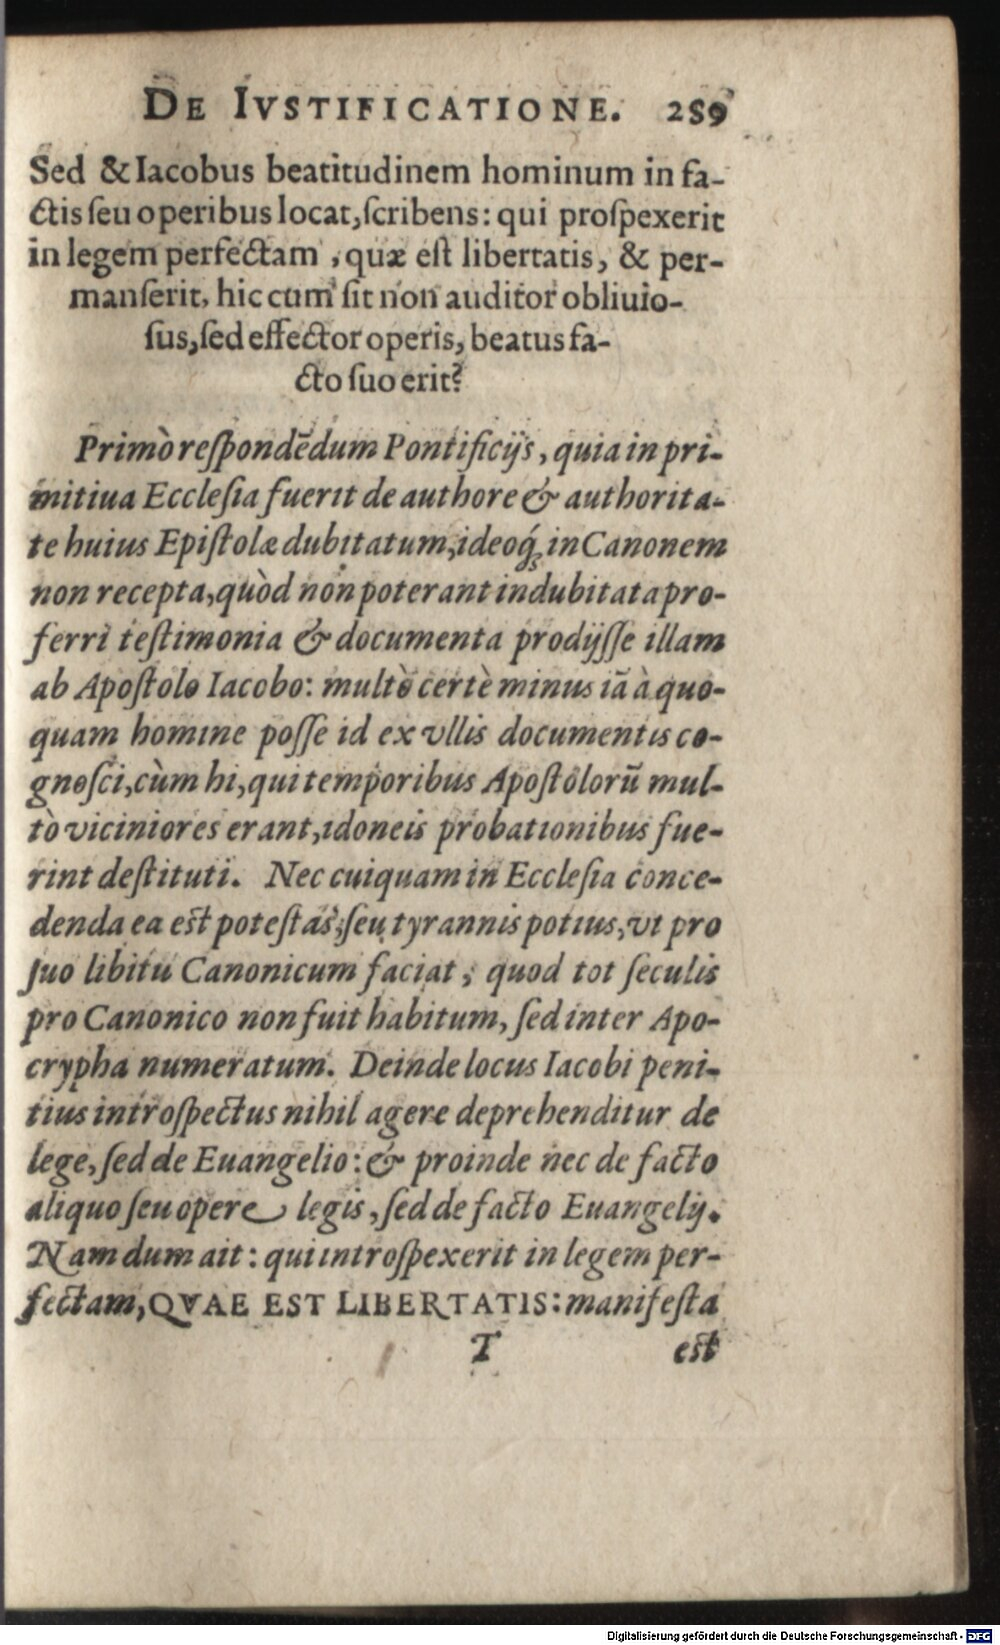 DE IVSTIFICATIONE. 289
Sed & Iacobus beatitudinem hominum in fa-
ctis ſeu operibus locat, ſcribens: qui proſpexerit
in legem perfectam, quæ eſt libertatis, & per-
manſerit, hic cum ſit non auditor obliuio-
ſus, ſed effector operis, beatus fa-
cto ſuo erit?
Primò reſpondēdum Pontificijs, quia in pri-
mitiua Eccleſia fuerit de authore & authorita-
te huius Epiſtolæ dubitatum, ideoq́; in Canonem
non recepta, quòd non poterant indubitata pro-
ferri teſtimonia & documenta prodijſſe illam
ab Apoſtolo Iacobo: multò certè minus iā à quo-
quam homine poſſe id ex vllis documentis co-
gnoſci, cùm hi, qui temporibus Apoſtolorū mul-
tò viciniores erant, idoneis probationibus fue-
rint deſtituti. Nec cuiquam in Eccleſia conce-
denda ea eſt poteſtas, ſeu tyrannis potius, vt pro
ſuo libitu Canonicum faciat, quod tot ſeculis
pro Canonico non fuit habitum, ſed inter Apo-
crypha numeratum. Deinde locus Iacobi peni-
tius introſpectus nihil agere deprehenditur de
lege, ſed de Euangelio: & proinde nec de facto
aliquo ſeu opere legis, ſed de facto Euangelij.
Nam dum ait: qui introſpexerit in legem per-
fectam, QVAE EST LIBERTATIS: manifeſta
T eſt
Digitalisierung gefördert durch die Deutsche Forschungsgemeinschaft - DFG